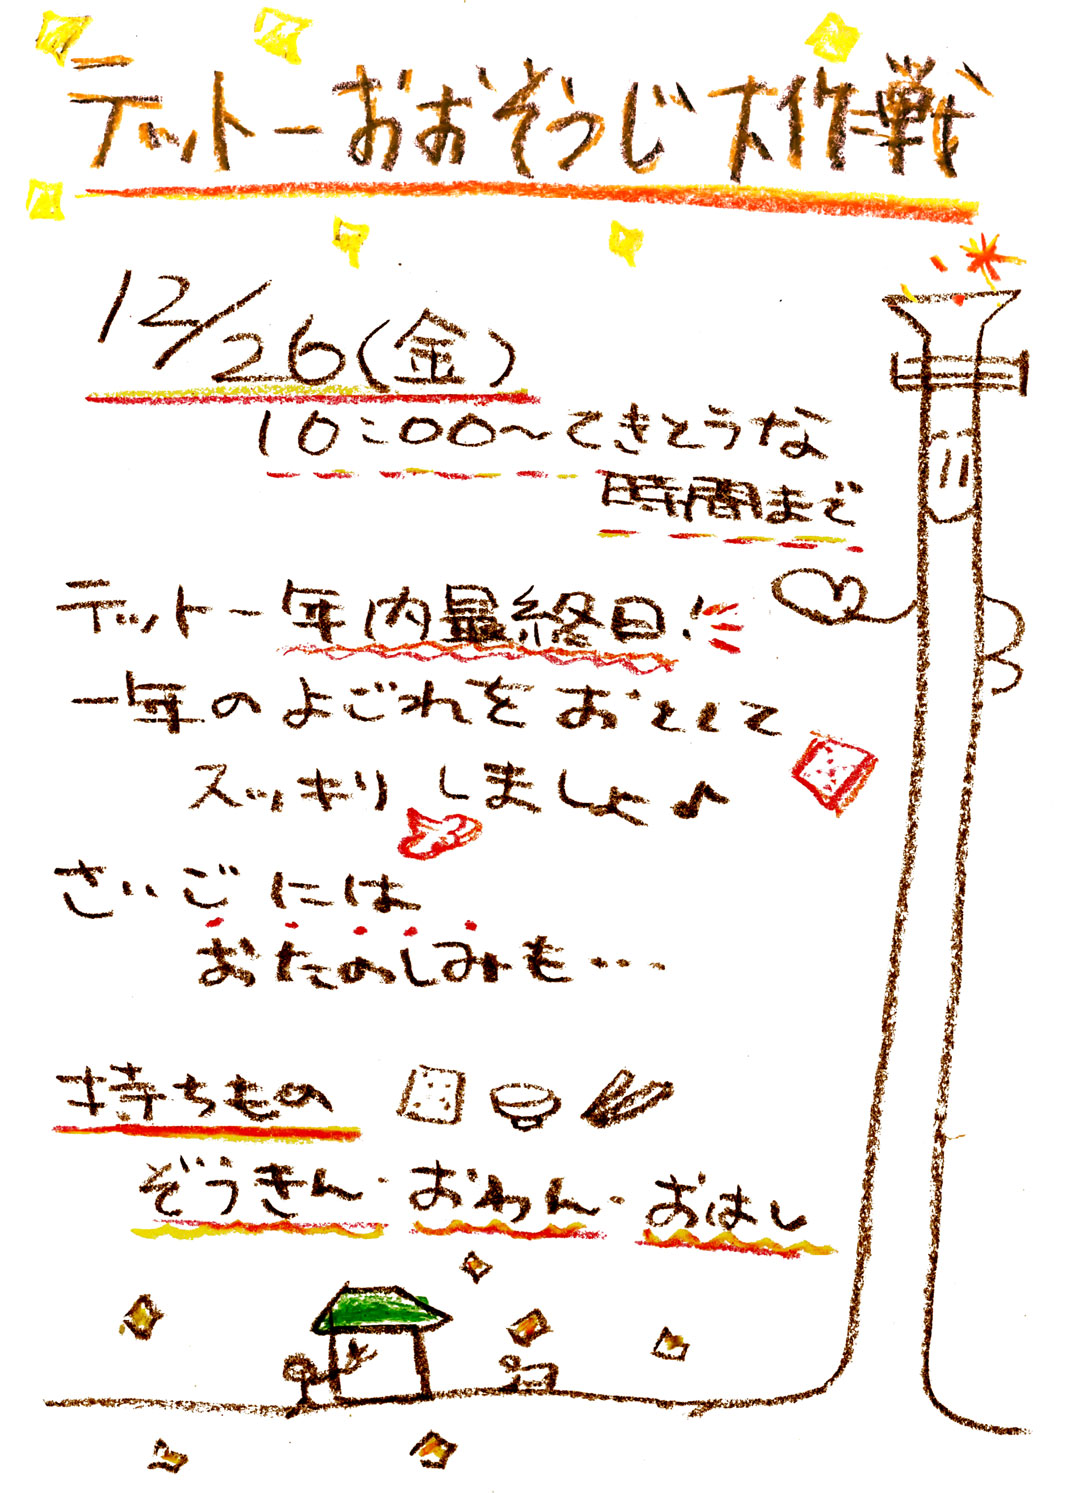 テットーおおぞうじ大作戦
12/26(金)
10:00〜てきとうな
時間まで
テットー年内最終日!
一年のよごれをおとして
スッキリしましょ♪
さいごには
おたのしみも…
持ちもの
ぞうきん・おわん・おはし